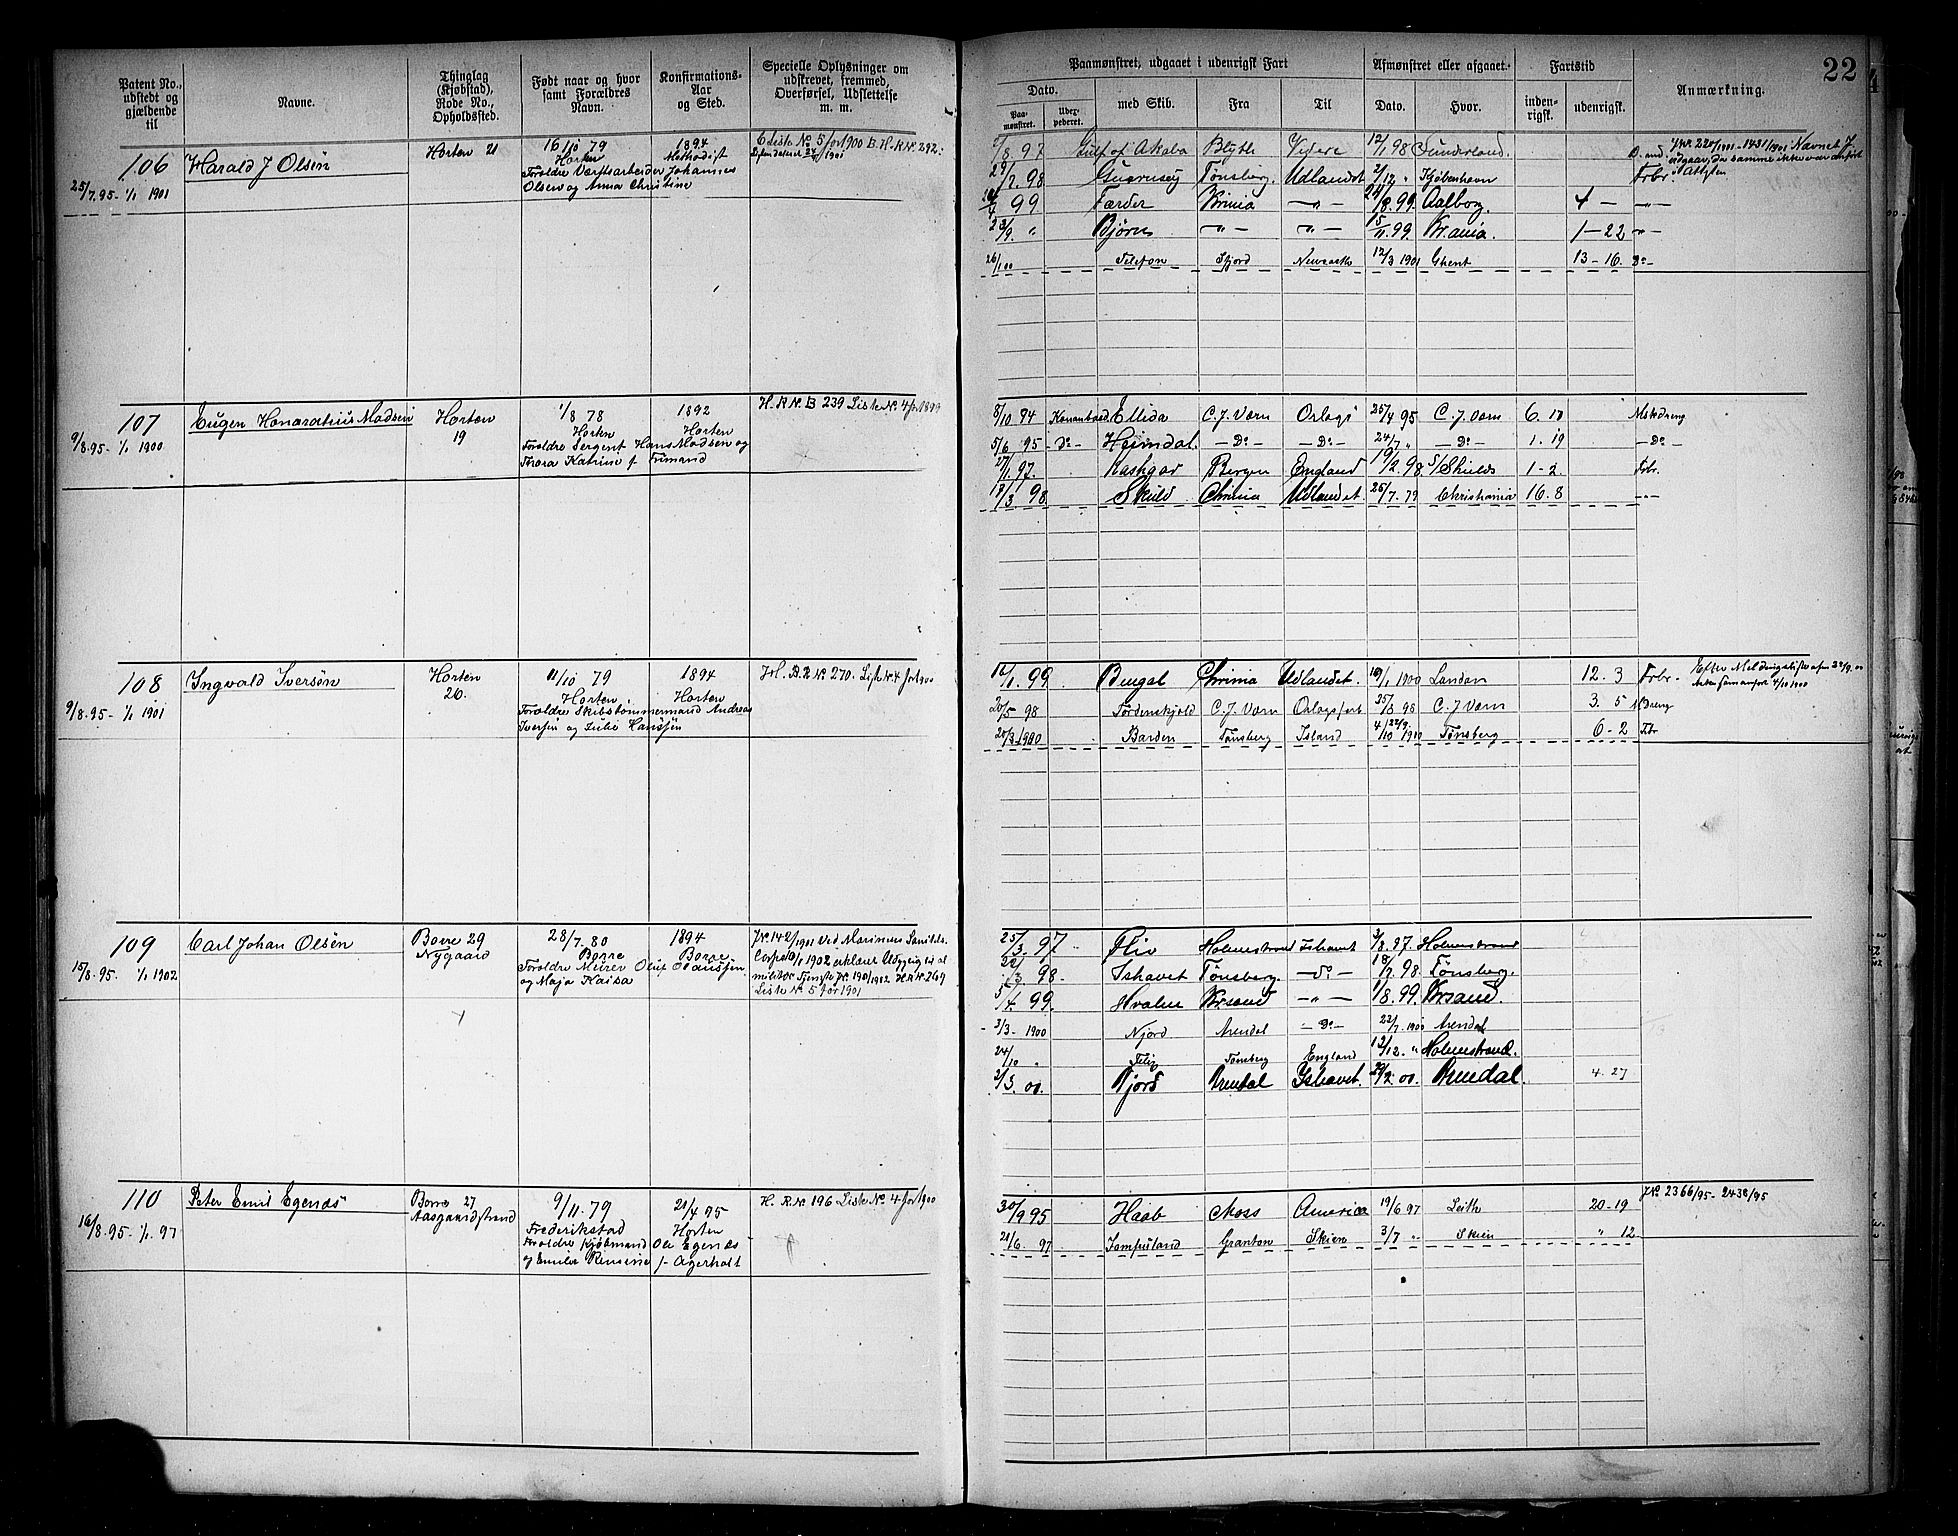 Patent No., udstedt og gjældende til
Navne.
Thinglag (Kjøbstad), Rode No., Opholdssted.
Født naar og hvor samt Forældres Navn.
Konfirmations-Aar og Sted.
Specielle Oplysninger om udskrevet, fremmed, Overførsel, Udslettelse m. m.
106
25/7.95 - 1/1 1901
Harald J Olsen
Horten 21
16/10 79
Horten
Foreldre Værftsarbeider Johannes
Olsen og Anna Christine
1894
Methodist
C Liste No 5 for 1900 B. H.R.N. 292.
107
9/8.95 - 1/1 1900
Eugen Honoratius Madsen
Horten
19
1/8 78
Horten
Foreldre Sergent Hans Madsen og
Thora Katrine f. Frimand
1892
Horten
H.R.N. B 239 Liste No 4 for 1899
108
9/8.95 - 1/1 1901
Ingvald Iversen
Horten
26.
11/10 79
Horten
Foreldre Skibstømmermand Andreas
Iversen og Julie Hansen
1894
Horten
H. B.R No 270. Liste N. 4 for 1900
109
15/8.95. 1/1 1902
Carl Johan Olsen
Borre 29
Nygaard
28/7. 80
Borre
Foreldre Meirer Oluf Hansen
og Maja Kaisa
1894
Borre
J.N. 142/1901 Ved Marinens Sanitets
Corps 10/1 1902 erklæret Udygtig til al
militær Tjeneste J.N. 190/1902 H.R.N. 269
Liste No 5 for 1901
110
16/8.95 - 1/1. 97
Peter Emil Egenæs
Borre 27
Aasgaardstrand
9/11. 79
Frederikstad
Foreldre Kjøbmand Ole Egenæs
og Emilie f. Agerholt
21/4 95
Horten
H. R.N. 196 Liste No 4 for 1900
22
Paamønstret, udgaaet i udenrigsk Fart
Afmønstret eller afgaaet.
Fartstid
Anmærkning.
Dato.
med Skib.
Fra
Til
Dato.
Hvor.
inden-rigsk.
udenrigsk.
Paa-mønstret.
Uder-pederet.
/8 97 Gulf of Akaba Blyth Videre 12/1 98 Sunderland.
29/7. 98 Guernsey Tønsberg. Udlandet 2/12 " Kjøbenhavn Frbr.
/4 99 Færder Krania —"— /8.99. Aalborg. 4 — —"—
23/9. " Bjørn —"— —"— 15/11.99. Krania. 1—22 —"—
26/1 00 Telefon Newcastle 12/3 1901 Ghent 13-16. Do—
J.N. 220/1901 - 1431/1901 Navnet J.
udgaar, da samme ikke var anført
8/10 94 Ellida C.J. Værn Orlogs 25/4 95 C.J. Værn 6. 17
5/6 95 Do Heimdal — Do — — Do — 24/7 " — Do — 1. 19 — Do —
27/1. 97. Kashgar Bergen England 19/2.98 S/Shields 1-2. Frbr.
18/3 98 Skuld Chrinia Udlandet. 25/7.79 Christiania 16.8 —"—
16/1 99 Bengal Chrinia Udlandet. 19/1 1900 London 12. 3 Frbr.
20/5 98 Tordenskjold C.J. Værn Orlogsfart 25/8 98 C.J. Værn 3. 5 Mdreng
20/3-1900 Barden Tønsberg Island 4/10 22/9. 1900 Tønsberg 6-2 Fbr
25/3. 97 Fliv Holmestrand Ishavet 3/8.97. Holmestrand
22/3. 98 Ishavet Tønsberg. —Do— 18/7. 98 Tønsberg.
5/4. 99 Hvalen Krsand —"— 1/8.99. Krsand.
3/3- 1900 Njord Arendal —Do— 22/7.1900 Arendal
24/10 " Tønsberg England 12/12. " Holmestrand.
2/3.00 Njord Arendal Ishavet. 29/2 00. Arendal 4. 27
30/9 95 Haab Moss America 19/6 97 Leith 20-19
21/6. 97 Granton Skien 3/7 " Skien " 12
J.No 2366/95 - 2438/95